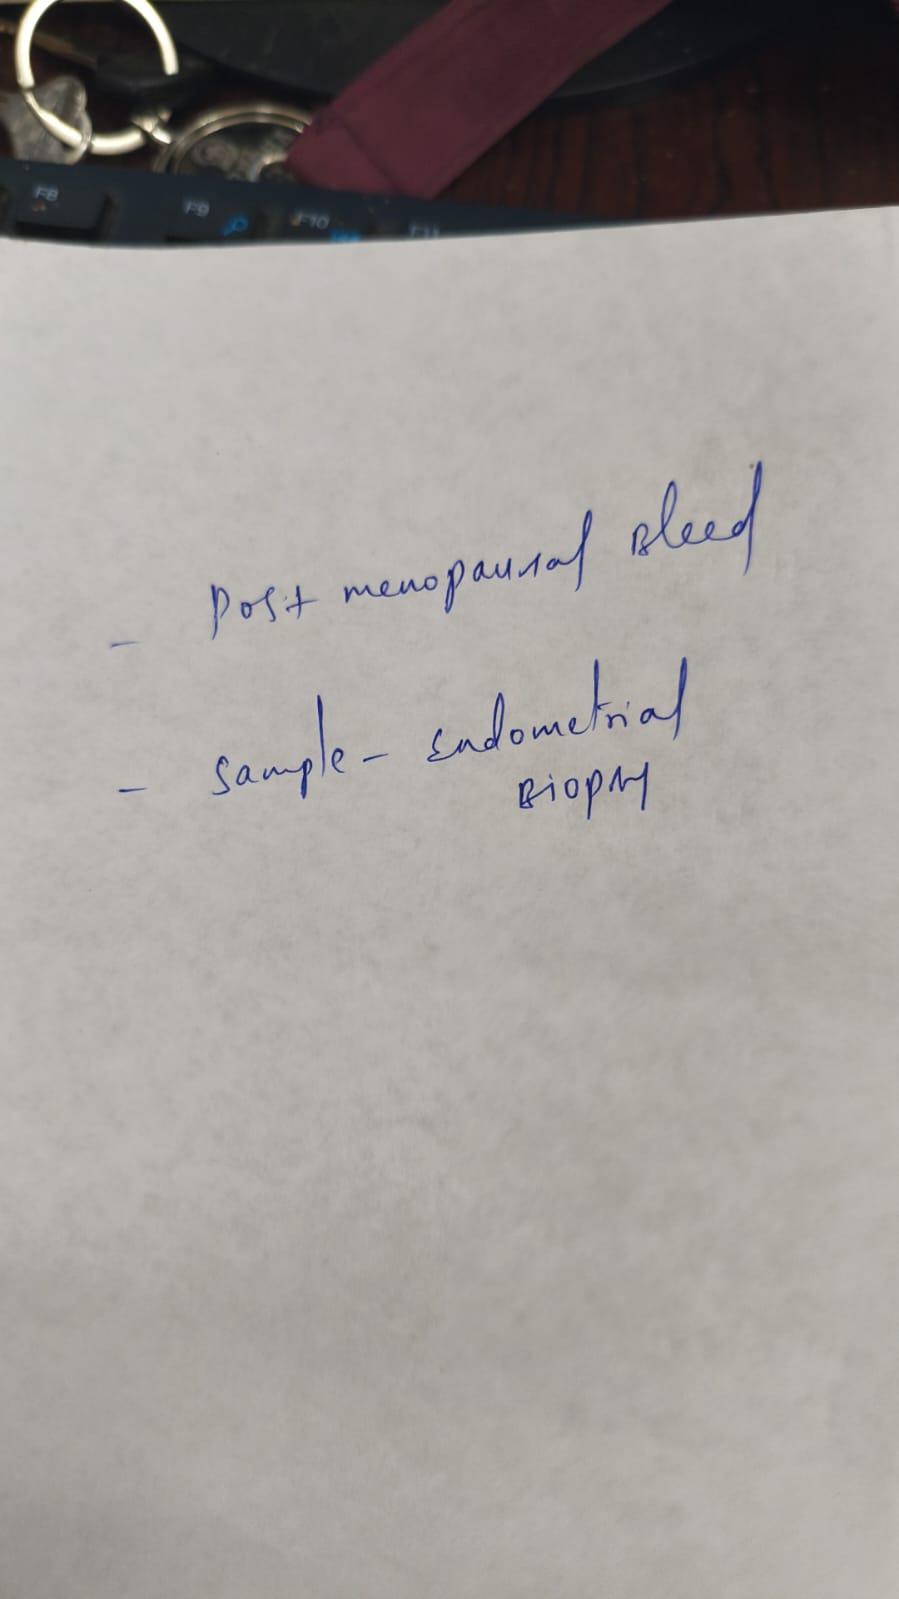 F8 F9 F10 F11
- Post menopausal Bleed
- Sample - Endometrial
Biopsy